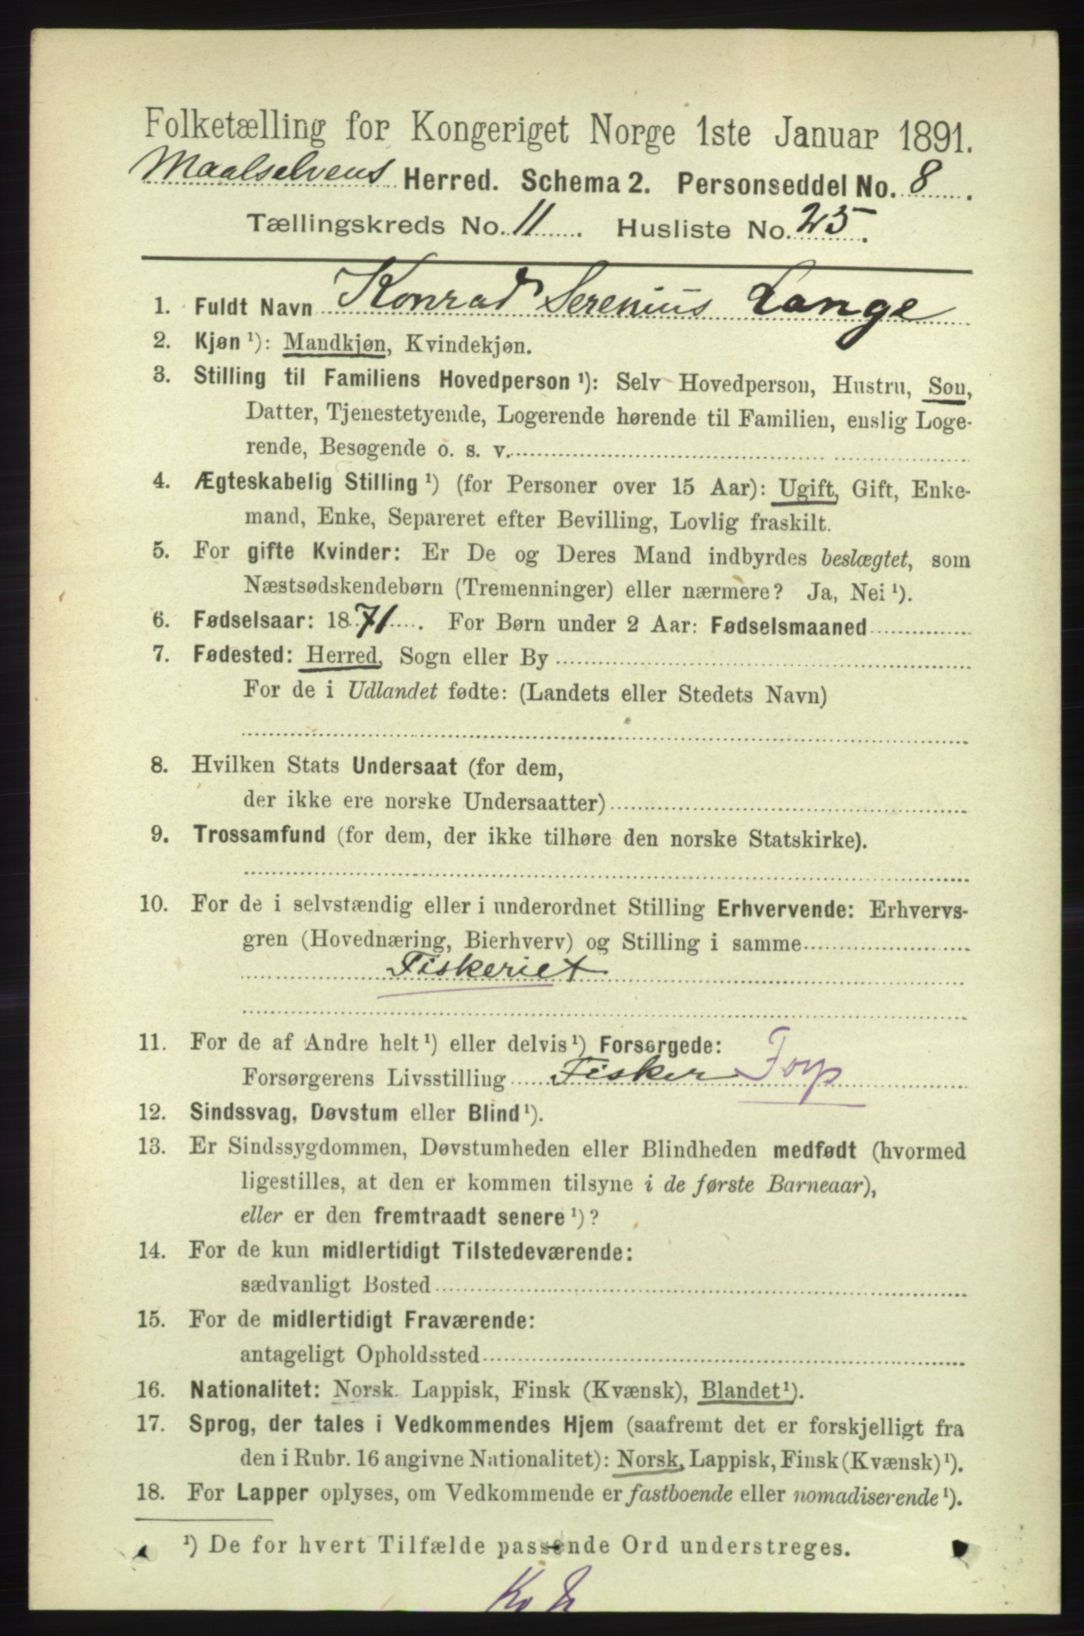 Folketælling for Kongeriget Norge 1ste Januar 1891.
Maalselvens Herred. Schema 2. Personseddel No. 8.
Tællingskreds No. 11. Husliste No. 25.
1. Fuldt Navn Konrad Serenius Lange
2. Kjøn ¹): Mandkjøn, Kvindekjøn.
3. Stilling til Familiens Hovedperson ¹): Selv Hovedperson, Hustru, Søn,
Datter, Tjenestetyende, Logerende hørende til Familien, enslig Loge-
rende, Besøgende o. s. v.
4. Ægteskabelig Stilling ¹) (for Personer over 15 Aar): Ugift, Gift, Enke-
mand, Enke, Separeret efter Bevilling, Lovlig fraskilt.
5. For gifte Kvinder: Er De og Deres Mand indbyrdes beslægtet, som
Næstsødskendebørn (Tremenninger) eller nærmere? Ja, Nei ¹).
6. Fødselsaar: 1871. For Børn under 2 Aar: Fødselsmaaned
7. Fødested: Herred, Sogn eller By
For de i Udlandet fødte: (Landets eller Stedets Navn)
8. Hvilken Stats Undersaat (for dem,
der ikke ere norske Undersaatter)
9. Trossamfund (for dem, der ikke tilhøre den norske Statskirke).
10. For de i selvstændig eller i underordnet Stilling Erhvervende: Erhvervs-
gren (Hovednæring, Bierhverv) og Stilling i samme
Fiskeriet
11. For de af Andre helt ¹) eller delvis ¹) Forsørgede:
Forsørgerens Livsstilling Fisker
12. Sindssvag, Døvstum eller Blind ¹).
13. Er Sindssygdommen, Døvstumheden eller Blindheden medfødt (hvormed
ligestilles, at den er kommen tilsyne i de første Barneaar),
eller er den fremtraadt senere ¹)?
14. For de kun midlertidigt Tilstedeværende:
sædvanligt Bosted
15. For de midlertidigt Fraværende:
antageligt Opholdssted
16. Nationalitet: Norsk. Lappisk, Finsk (Kvænsk), Blandet ¹).
17. Sprog, der tales i Vedkommendes Hjem (saafremt det er forskjelligt fra
den i Rubr. 16 angivne Nationalitet): Norsk, Lappisk, Finsk (Kvænsk) ¹).
18. For Lapper oplyses, om Vedkommende er fastboende eller nomadiserende ¹).
¹) De for hvert Tilfælde passende Ord understreges.